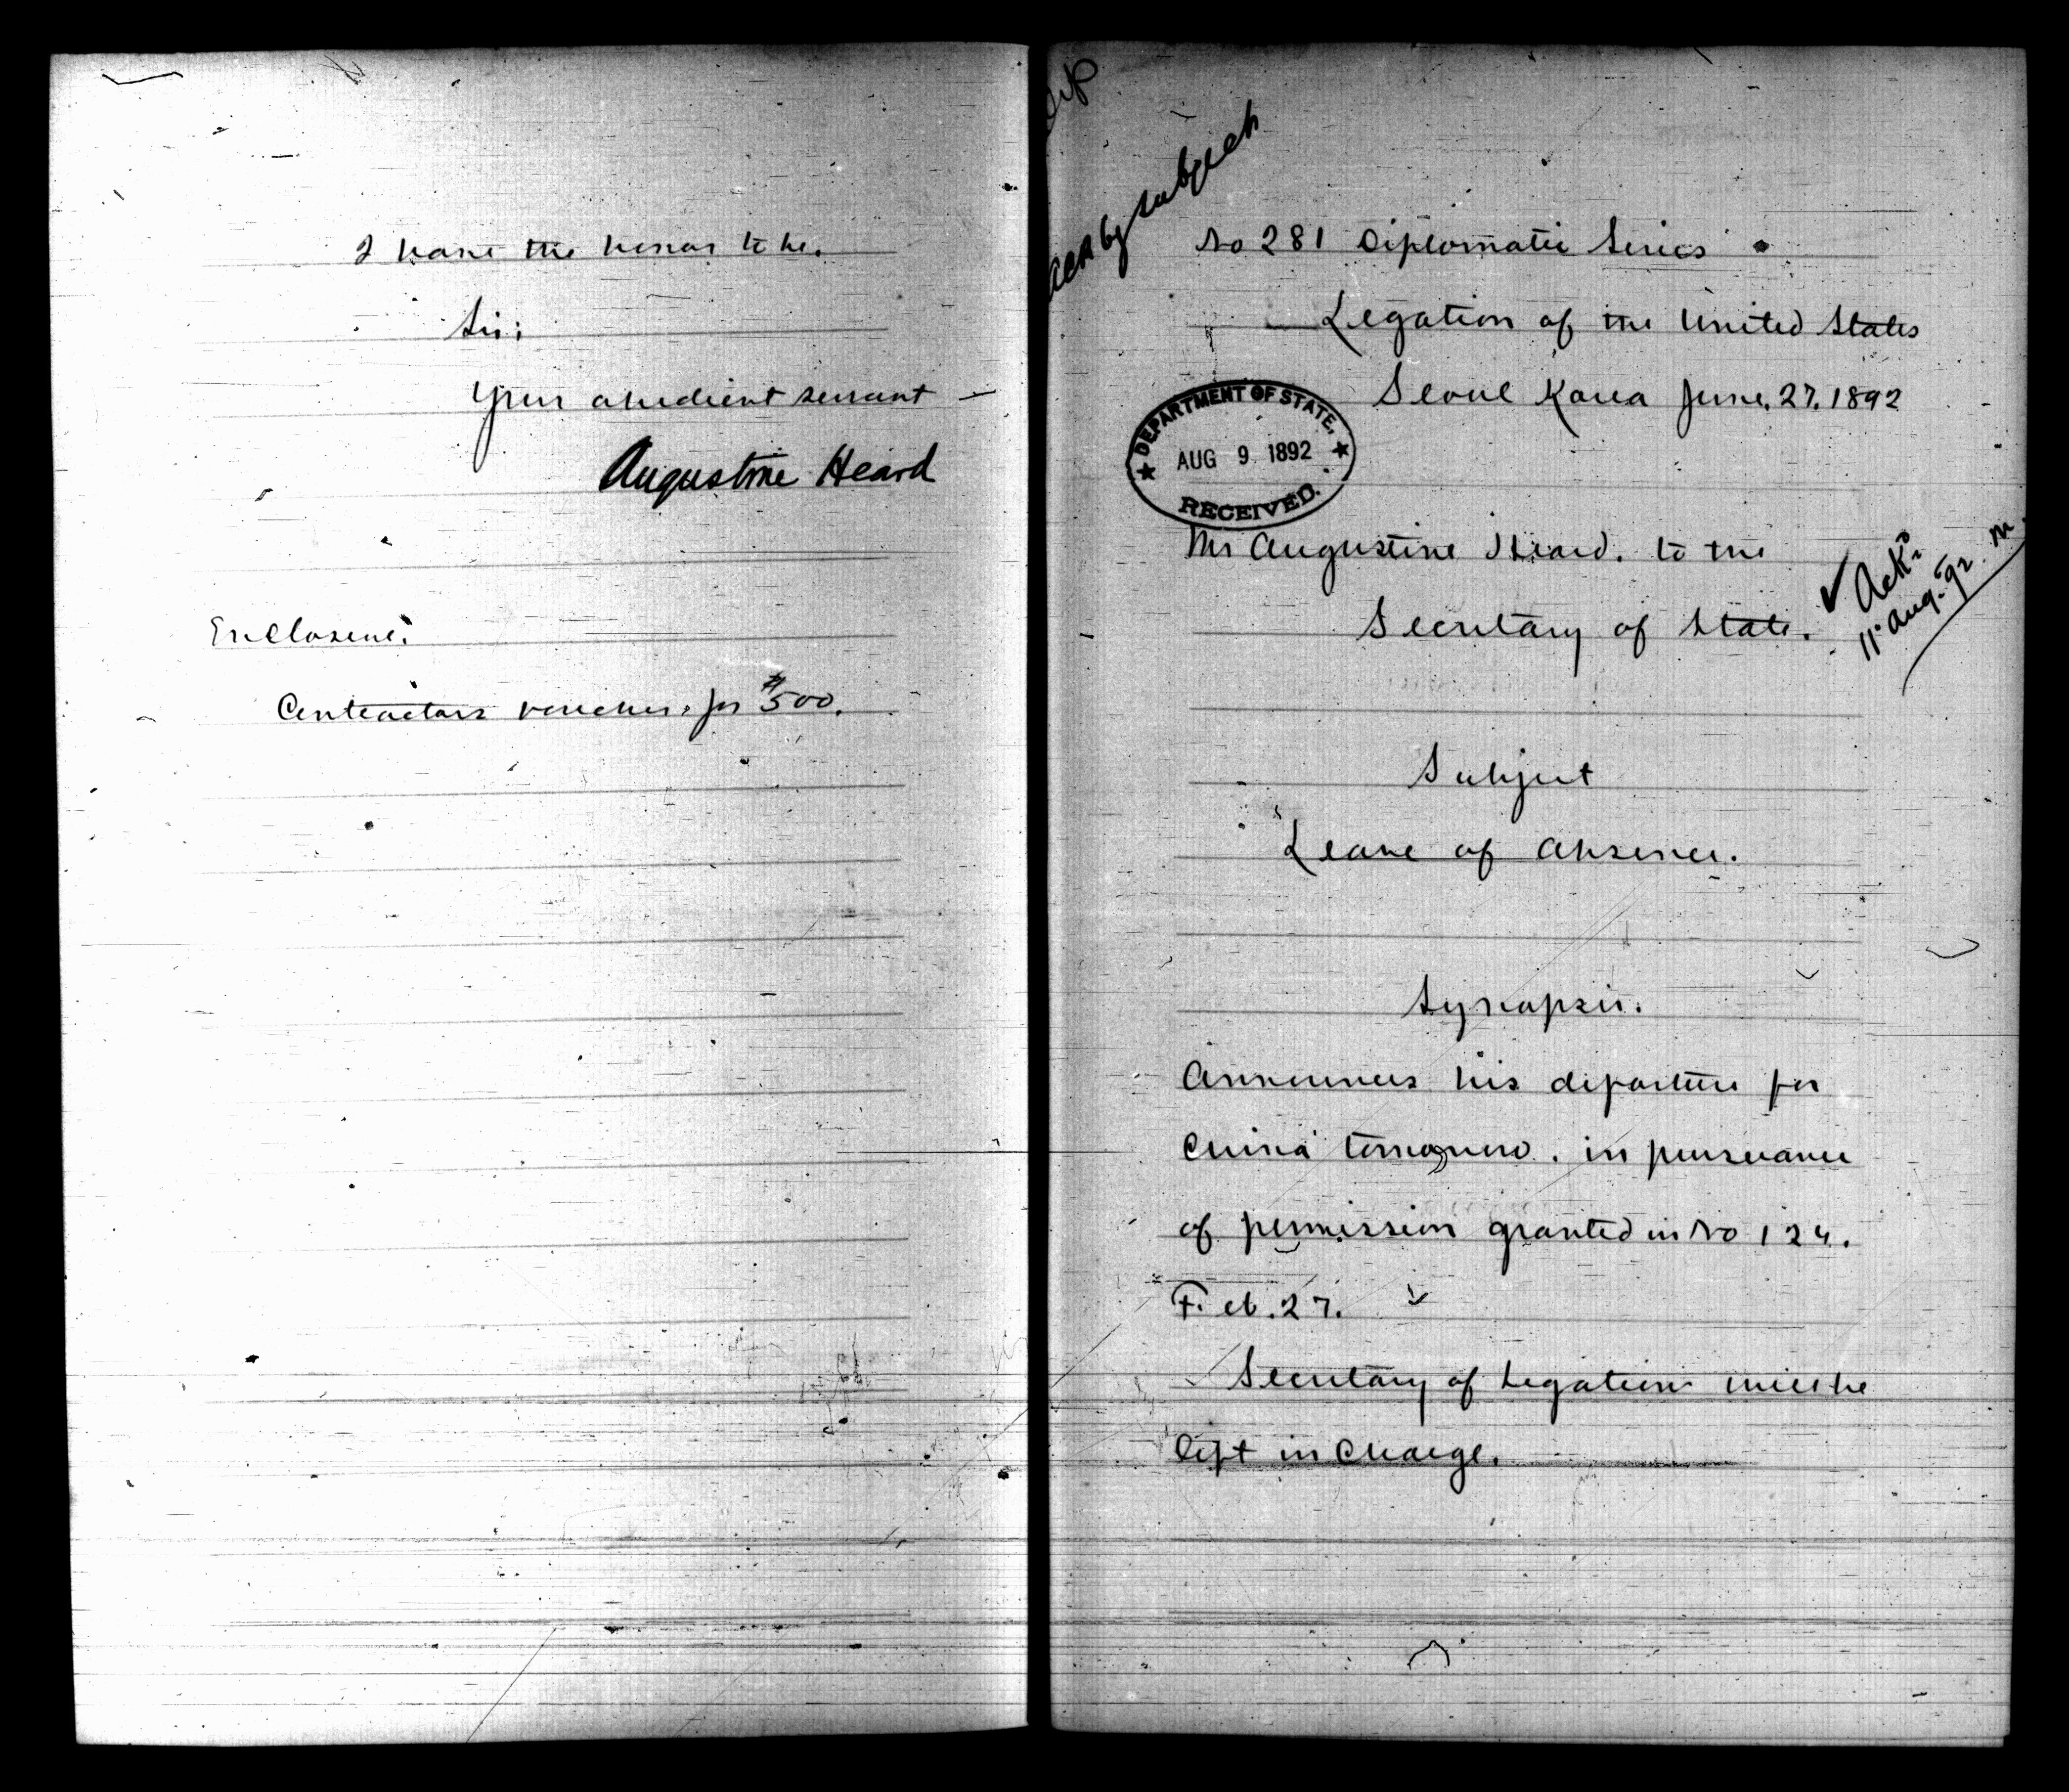 I have the honor to be.
Sir:
Your obedient servant
Augustine Heard
Enclosure.
Contractors voucher. for $500.
Ack by subject
No 281 Diplomatic Series
Legation of the United States
Seoul Korea June. 27. 1892
DEPARTMENT OF STATE,
AUG 9 1892
RECEIVED.
Mr Augustine Heard. to the
Secretary of State.
Ackd
11 Aug. 92 m
Subject
Leave of Absence.
Synopsis.
Announces his departure for
China tomorrow. in pursuance
of permission granted in No 124.
Feb. 27.
Secretary of Legation will be
left in charge.